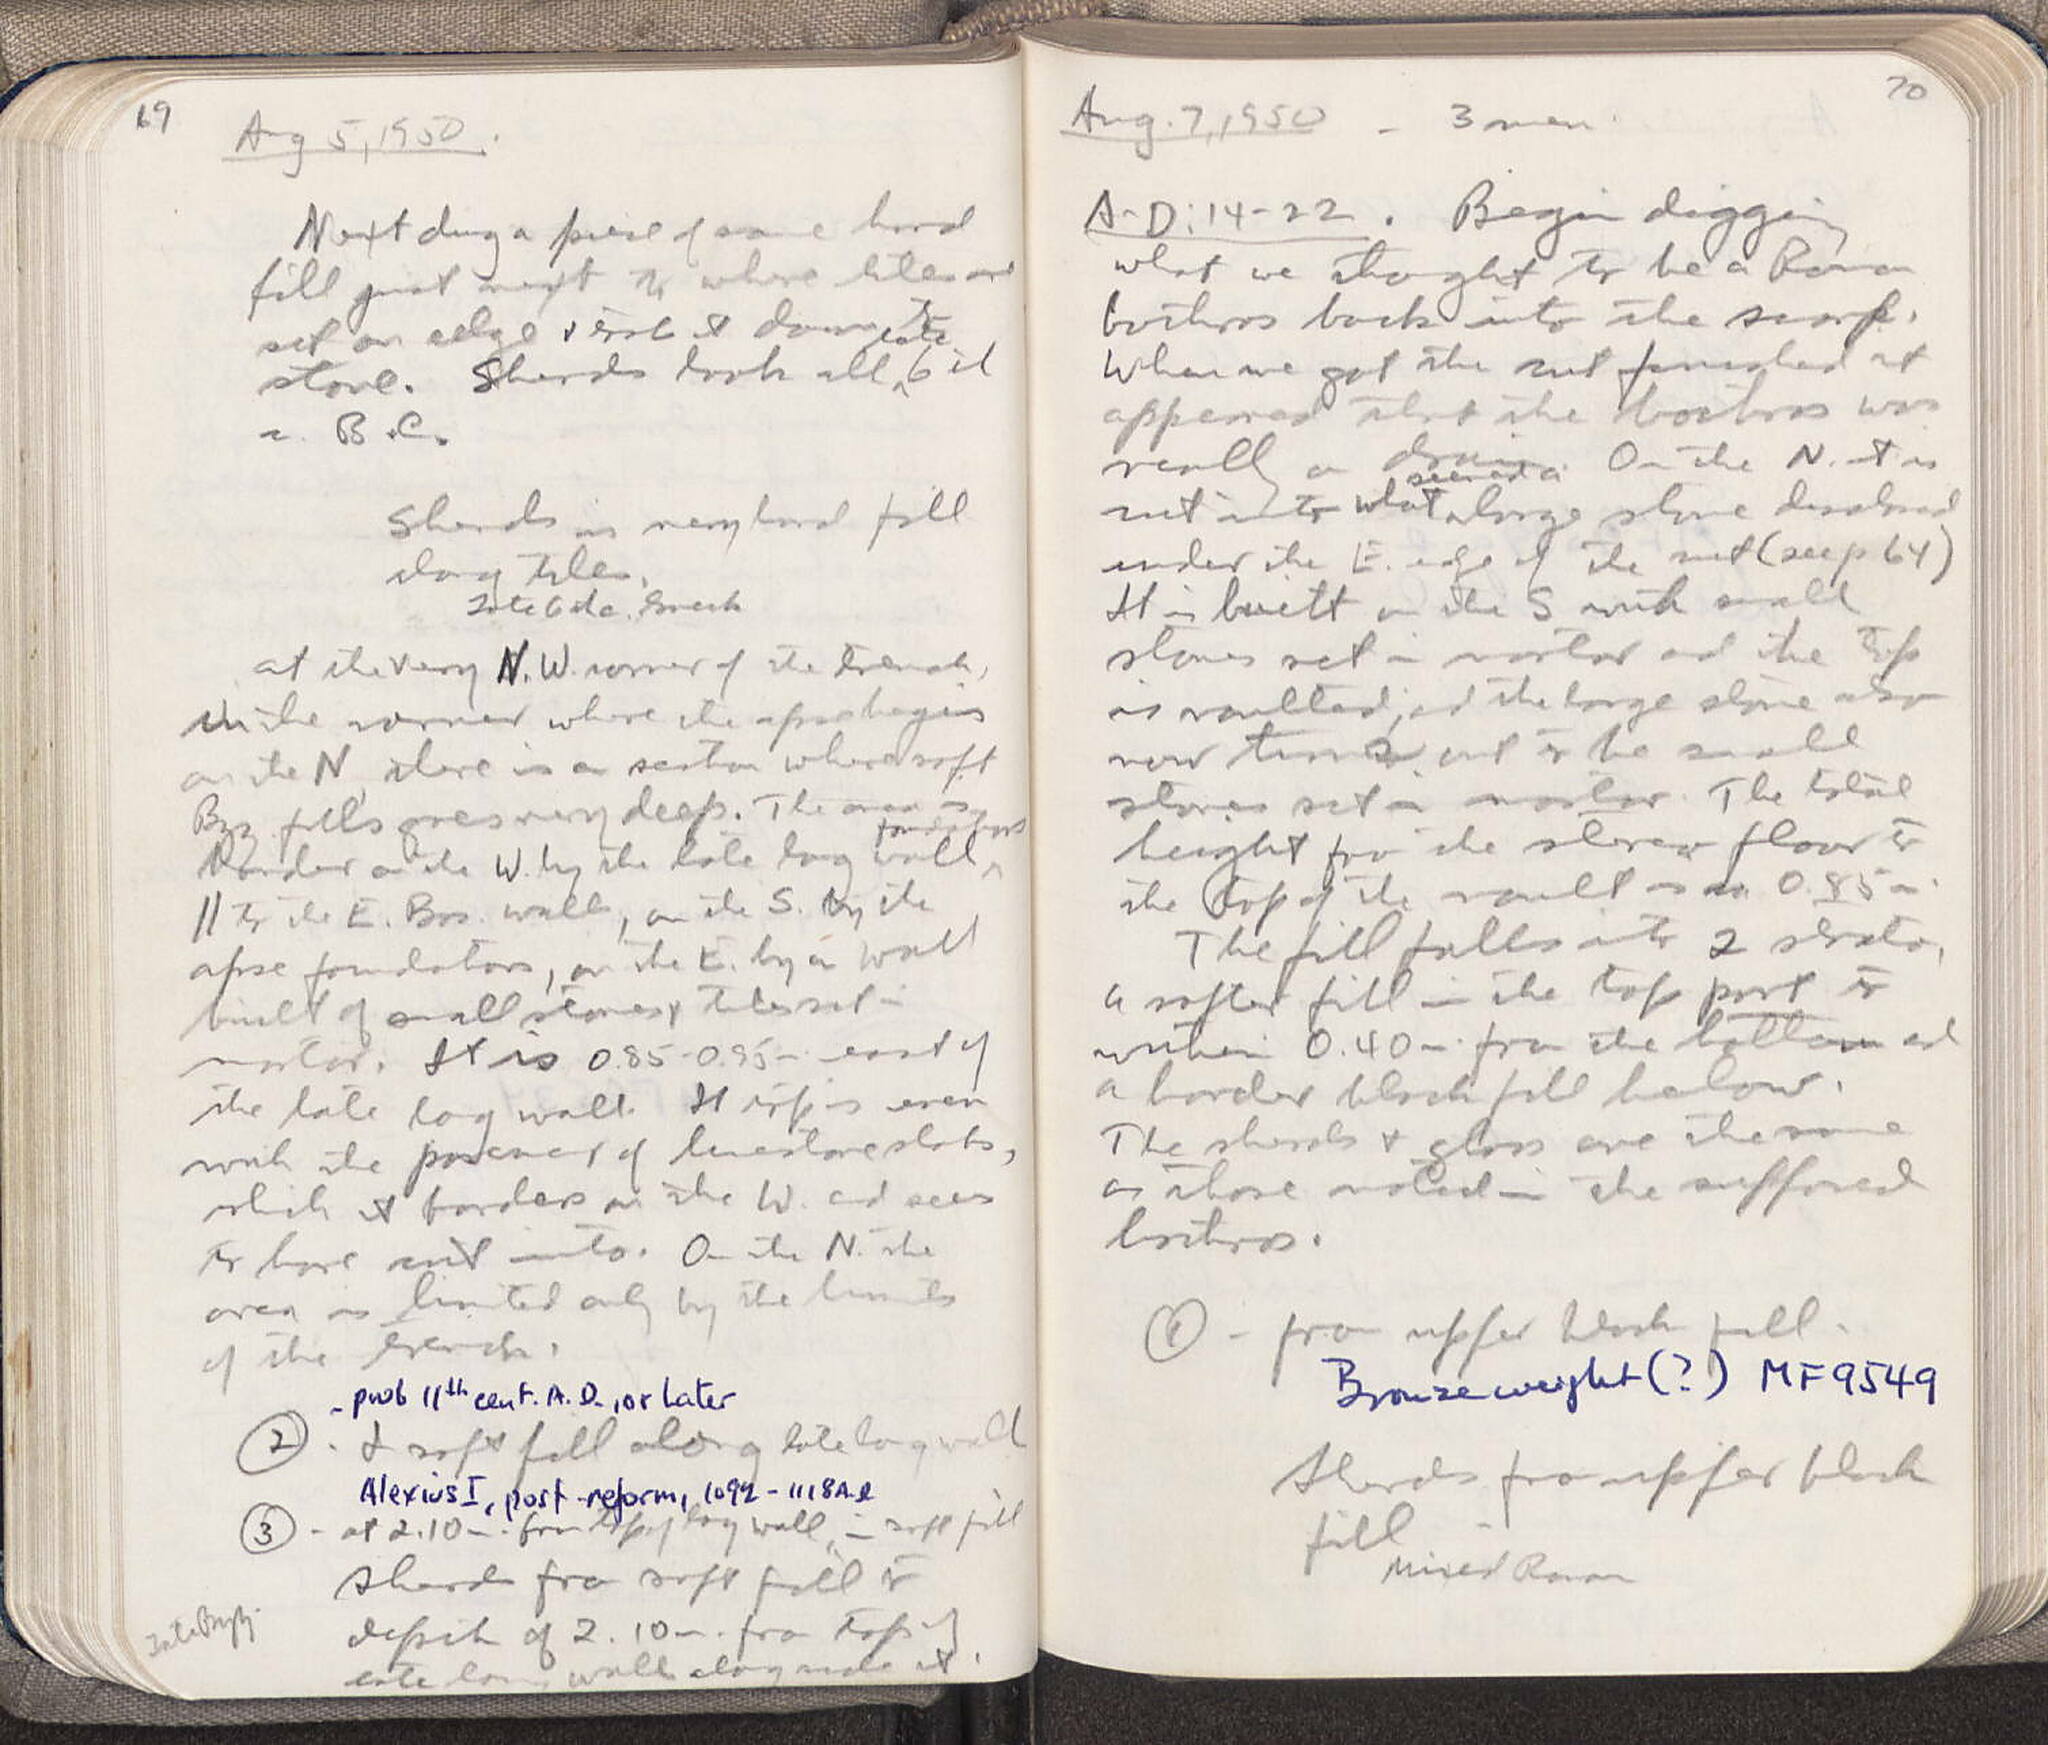 69
Aug 5, 1950.
Next dug a piece of same hard
fill just next to where tiles are
set on edge & it down to
stone. Sherds look all late 6th
c. B.C.
Sherds in very hard fill
along tiles.
Late 6th c. Greek
at the very N.W. corner of the trench,
in the corner where the apse begins
on the N, there is a section where soft
Byz. fills goes very deep. The area is
border on the W. by the late long wall foundations
|| to the E. Bas. wall, on the S. by the
apse foundations, on the E. by a wall
built of small stones & tiles set in
mortar. It is 0.85-0.95 m. east of
the late long wall. It top is even
with the pavement of limestone slabs,
which it borders on the W. and seems
to have cut into. On the N. the
area is limited only by the limits
of the trench.
- prob 11th cent. A.D., or later
② - soft fill along late long wall
Alexius I, post-reform, 1092-1118 A.D.
③ - at 2.10 m. from top of long wall, in soft fill
Sherds from soft fill to
depth of 2.10 m. from top of
late long wall alongside it.
Late Byz.
70
Aug. 7, 1950 - 3 men.
A-D:14-22. Begin digging
what we thought to be a Roman
bothros back into the scarp.
When we got the cut finished it
appeared that the bothros was
really a drain. On the N. it is
cut into what seemed a large stone
under the E. edge of the cut (see p 64)
It is built on the S with small
stones set in mortar and the top
is vaulted, and the large stone also
now turns out to be small
stones set in mortar. The total
height from the floor to
the top of the vault is ca. 0.85 m.
The fill falls into 2 strata,
a softer fill in the top part to
within 0.40 m. from the bottom and
a harder black fill below.
The sherds & glass are the same
as those noted in the supposed
bothros.
① - from upper black fill.
Bronze weight (?) MF 9549
Sherds from upper black
fill
Mixed Roman